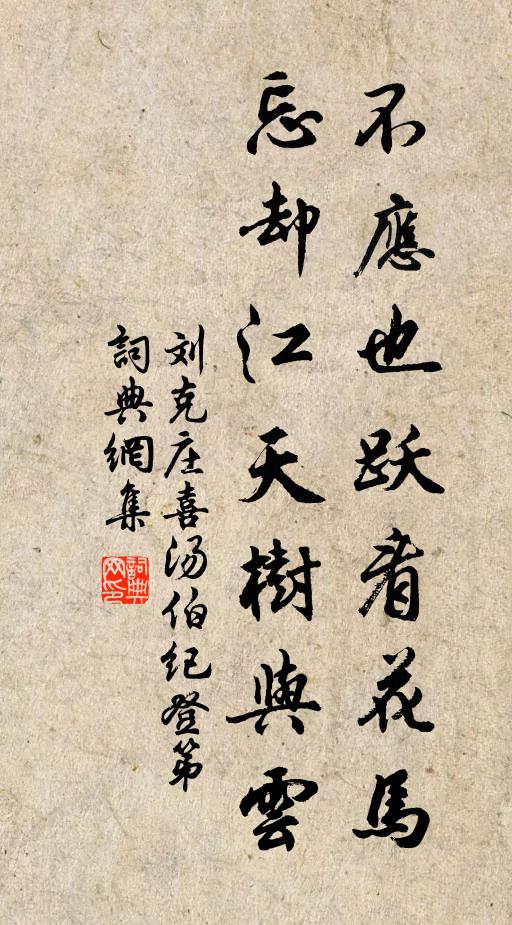 不應也跃看花馬
忘却江天樹與雲
刘克庄喜汤伯纪登第
詞典網集
詞典网印